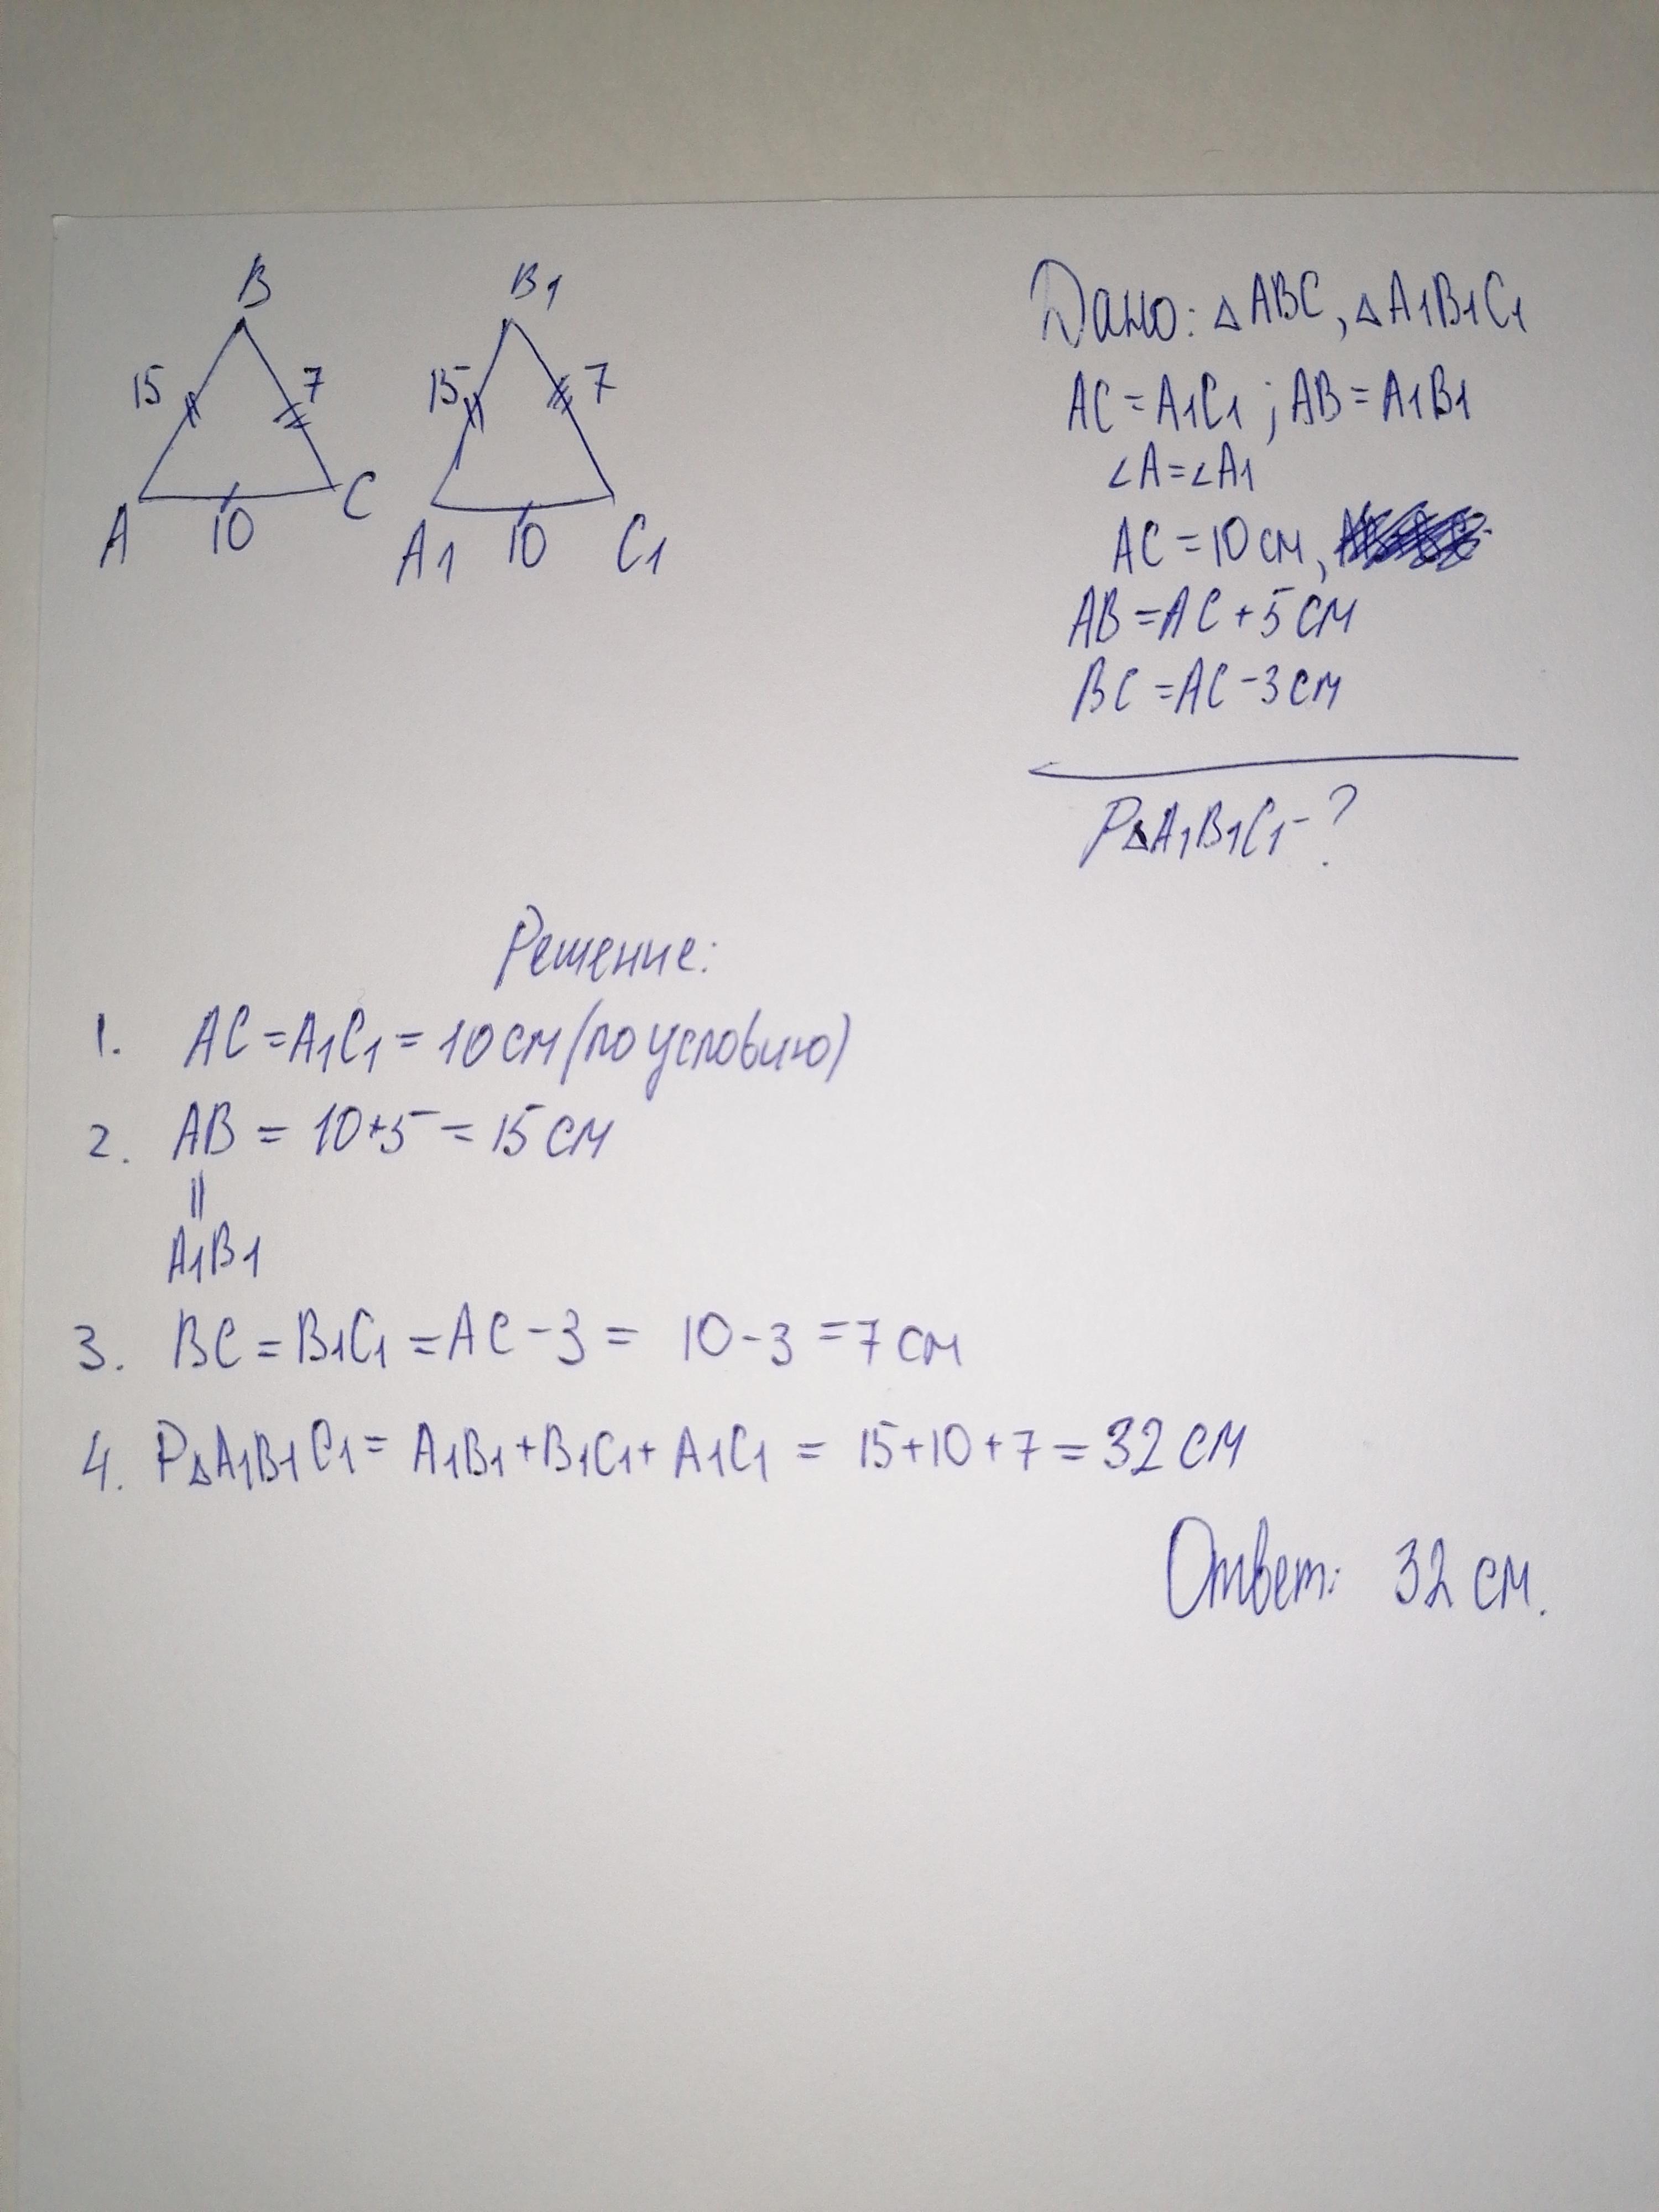 B B1
15 7 15 7
A 10 C A1 10 C1
Дано: △ABC, △A1B1C1
AC = A1C1 ; AB = A1B1
∠A = ∠A1
AC = 10 см,
AB = AC + 5 см
BC = AC - 3 см
P△A1B1C1 - ?
Решение:
1. AC = A1C1 = 10 см (по условию)
2. AB = 10+5 = 15 см
||
A1B1
3. BC = B1C1 = AC - 3 = 10 - 3 = 7 см
4. P△A1B1C1 = A1B1 + B1C1 + A1C1 = 15+10+7 = 32 см
Ответ: 32 см.